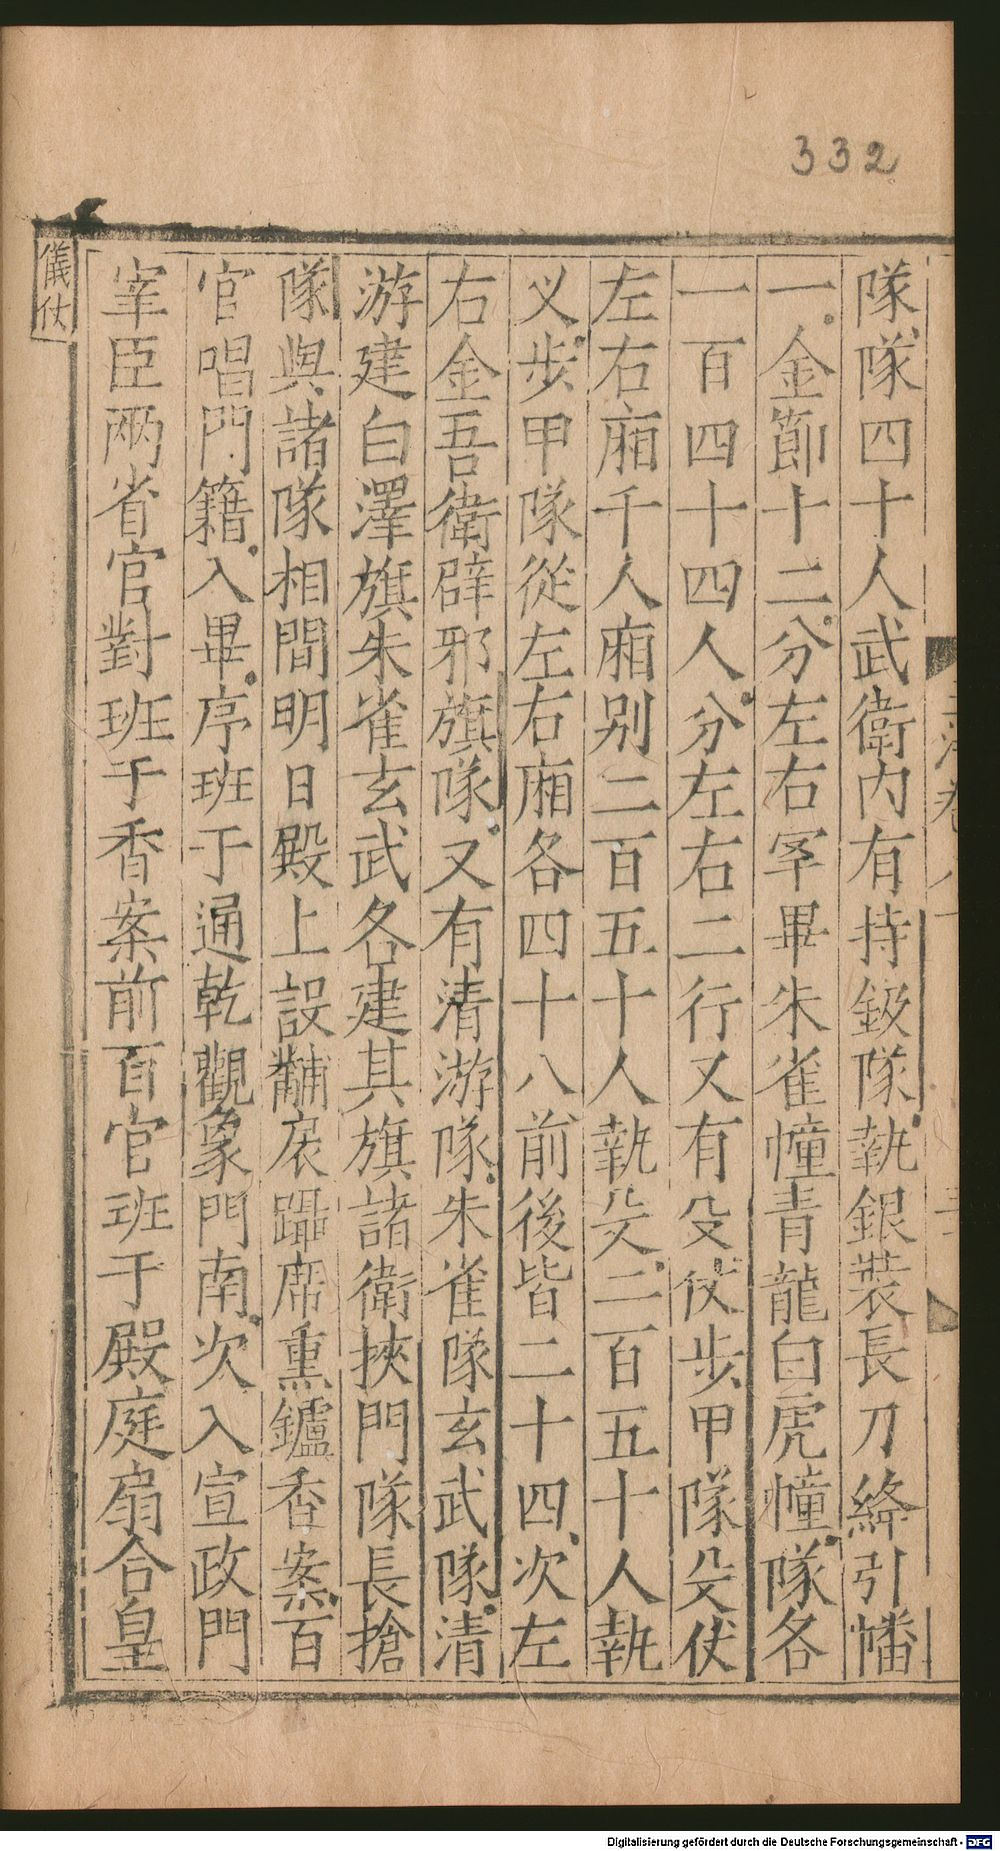 332
隊隊四十人武衛内有持鈒隊執銀裝長刀絳引幡
一金節十二分左右罕畢朱雀幢青龍白虎幢隊各
一百四十四人分左右二行又有殳仗步甲隊殳仗
左右廂千人廂别二百五十人執殳二百五十人執
乂步甲隊從左右廂各四十八前後皆二十四次左
右金吾衛辟邪旗隊又有清游隊朱雀隊玄武隊清
游建白澤旗朱雀玄武各建其旗諸衛挾門隊長搶
隊與諸隊相間明日殿上設黼扆躡席熏鑪香案百
官唱門籍入畢序班于通乾觀象門南次入宣政門
宰臣兩省官對班于香案前百官班于殿庭扇合皇
儀仗
Digitalisierung gefördert durch die Deutsche Forschungsgemeinschaft - DFG